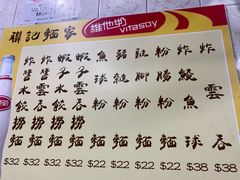 聯記麵家
維他奶
vitasoy
炸醬水餃撈麵
炸醬雲吞撈麵
蝦子水餃撈麵
蝦子雲吞撈麵
魚球粉麵
豬粉麵
腳粉麵
粉腸粉麵
炸鯪魚球
炸雲吞
$32 $32 $32 $32 $22 $22 $22 $22 $38 $38